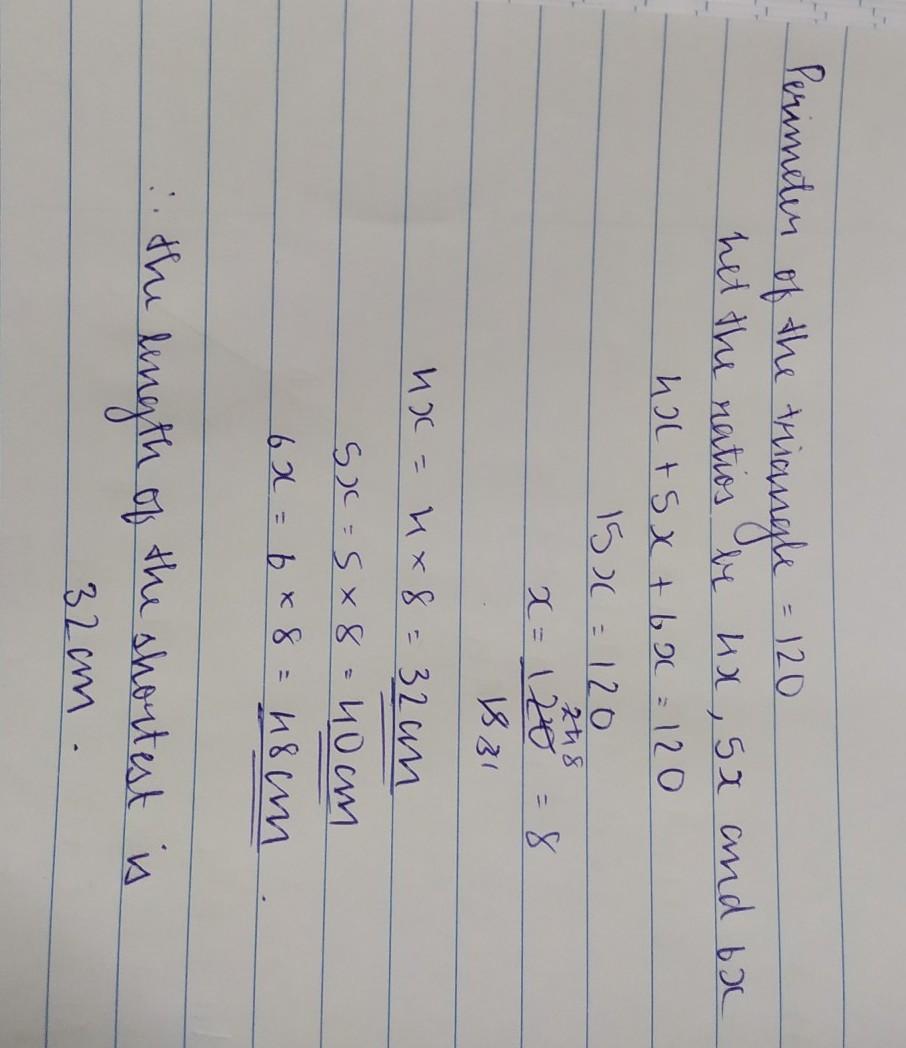 Perimeter of the triangle = 120
Let the ratios be 4x, 5x and 6x
4x + 5x + 6x = 120
15x = 120
x = 120 24 8 = 8
15 3 1
4x = 4 × 8 = 32cm
5x = 5 × 8 = 40cm
6x = 6 × 8 = 48cm.
∴ the length of the shortest is
32cm.